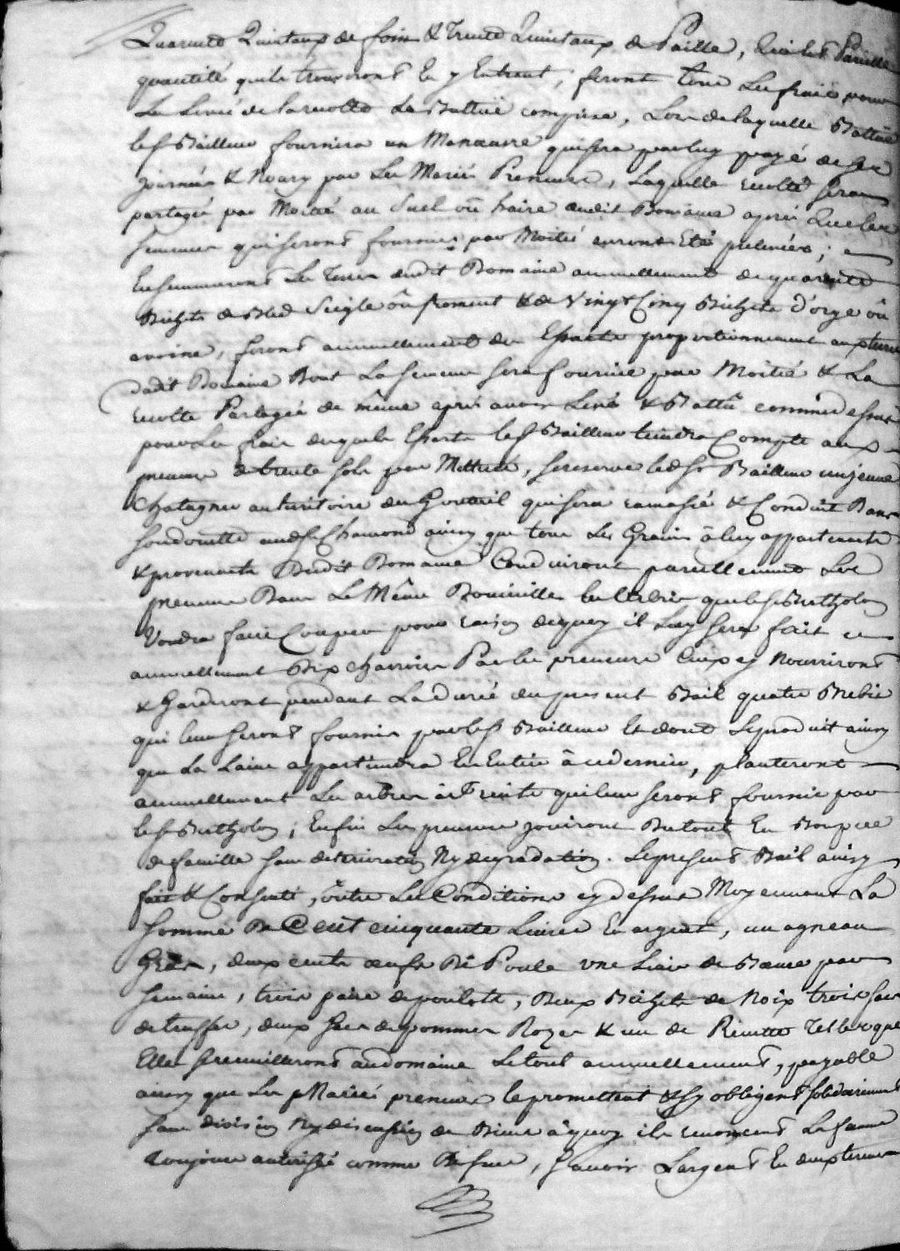 Quarante Quintaux de foin & Trente Quintaux de Paille, Laisser Pareille
quantité qu'ils trouveront En y Entrant, feront tous Les fraix pour
La Levée de la recolte La Battue comprise, Lors de laquelle Battue
led. Sr Bailleur fournira un Manœuvre qui sera par luy payé de ses
journées & Noury par Les Mariés Preneurs, Laquelle recolte sera
partagée par Moitié au Suel ou haire dudit Domaine après que les
semences qui seront fournies par Moitié auront Eté prelevées;
Ensemenceront Les Terres dudit Domaine annuellement de quarante
Bichets de Bled Seigle ou froment & de Vingt Cinq Bichets d'orge ou
avoine, feront annuellement des Essarts proportionnement aux terres
dudit Domaine Dont La semence sera fournie par Moitié & La
recolte Partagée de même après avoir Levé & Battu comme dessus
pour Les fraix duquel Essart led. Sr Bailleur tiendra Compte aux
preneurs de trente sols par Metterée, se reserve led. Sr Bailleur un jeune
Chatagner au territoire du qui sera ramassé & Conduit Dans
son domicille aud. St Chamond ainsy que tous Les Grains à luy appartenants
& provenants Dudit Domaine Conduiront pareillement Les
preneurs Dans Le Même Domicille les que led. Sr Bertholon
Voudra faire Couper pour raison de quoy il Luy sera fait
annuellement Dix charrois Par les preneurs Lesquels Nourriront
& Garderont pendant La durée du present Bail quatre Brebis
qui leur seront fournies par led. Sr Bailleur Et dont Le produit ainsy
que La Laine appartiendra En Entier à ce dernier, planteront
annuellement Les arbres à fruits qui leur seront fournis par
led. Sr Bertholon; Enfin Les preneurs jouiront Du tout En Bon pere
de famille sans deterioration Ny degradation. Le present Bail ainsy
fait & Consenti, outre Les Conditions cy dessus Moyennant La
somme De Cent cinquante Livres En argent, un agneau
Gras, deux cents œufs De Poule une Livre de Beurre par
semaine, trois paires de poulets, Deux Bichets de Noix trois sacs
de truffes, deux sacs de pommes Rozes & un de Reinettes Telles que
Elles se Cueilleront au domaine Le tout annuellement, payable
ainsy que Les Mariés preneurs le promettent & s'y obligent solidairement
sans division Ny discussion de Biens à quoy ils renoncent La femme
Toujours authorisée comme Dessus, sçavoir L'argent En deux termes